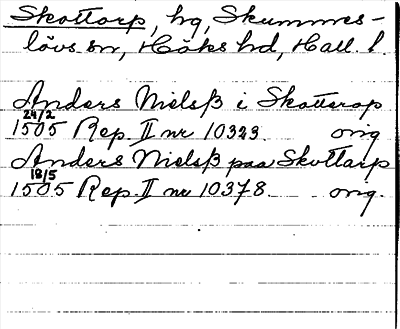 Skottorp, hg, Skummes-
lövs sn, Höks hd, Hall. l.
Anders Nielsß i Skotterop
24/2 1505 Rep. II nr 10323 orig
Anders Nielsß paa Skottarp
18/5 1505 Rep. II nr 10378 orig.